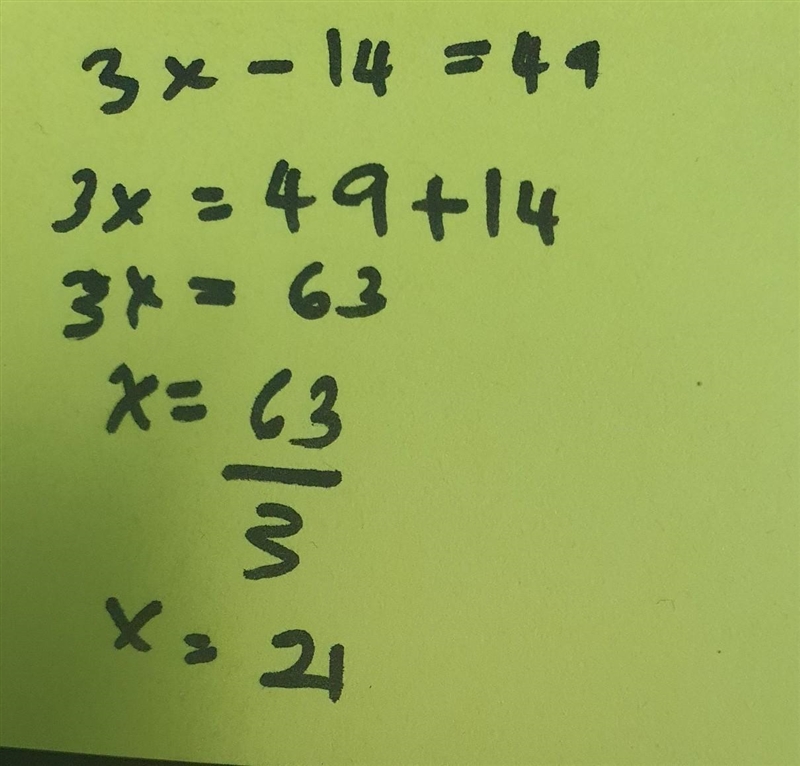 3x - 14 = 49
3x = 49 + 14
3x = 63
x = 63
3
x = 21